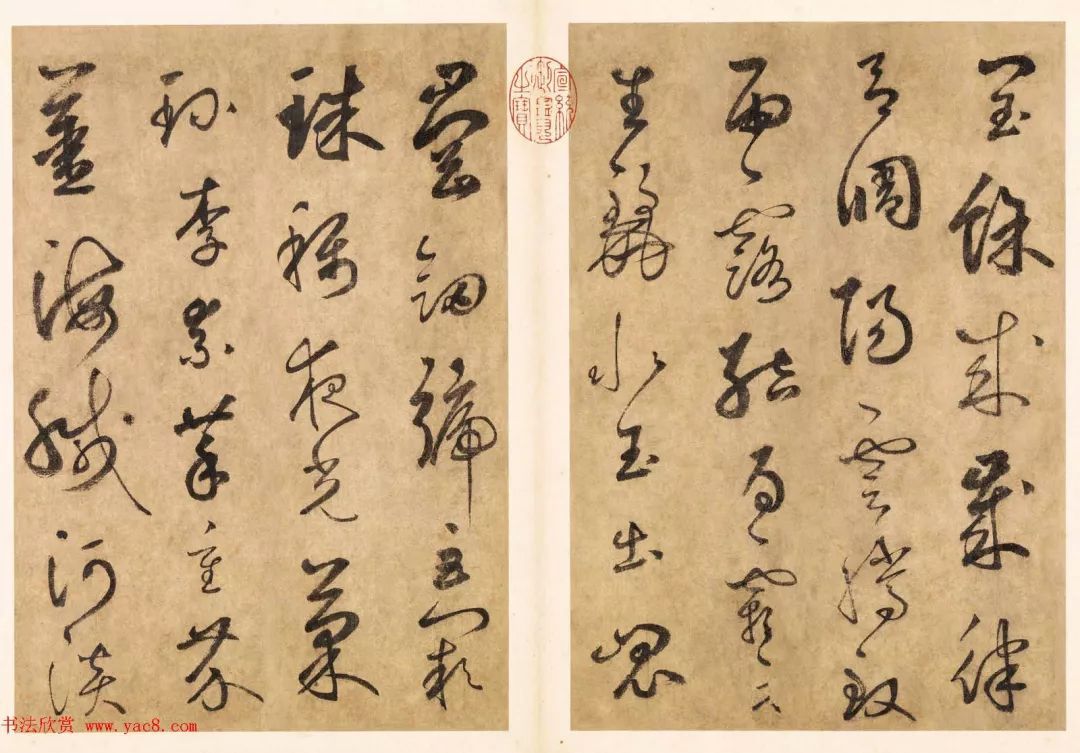 閏餘成歲律
呂調陽雲騰致
雨露結為霜金
生麗水玉出崑
宣統御覽之寶
崗劍號巨闕
珠稱夜光菓
珎李柰菜重芥
薑海鹹河淡
书法欣赏 www.yac8.com